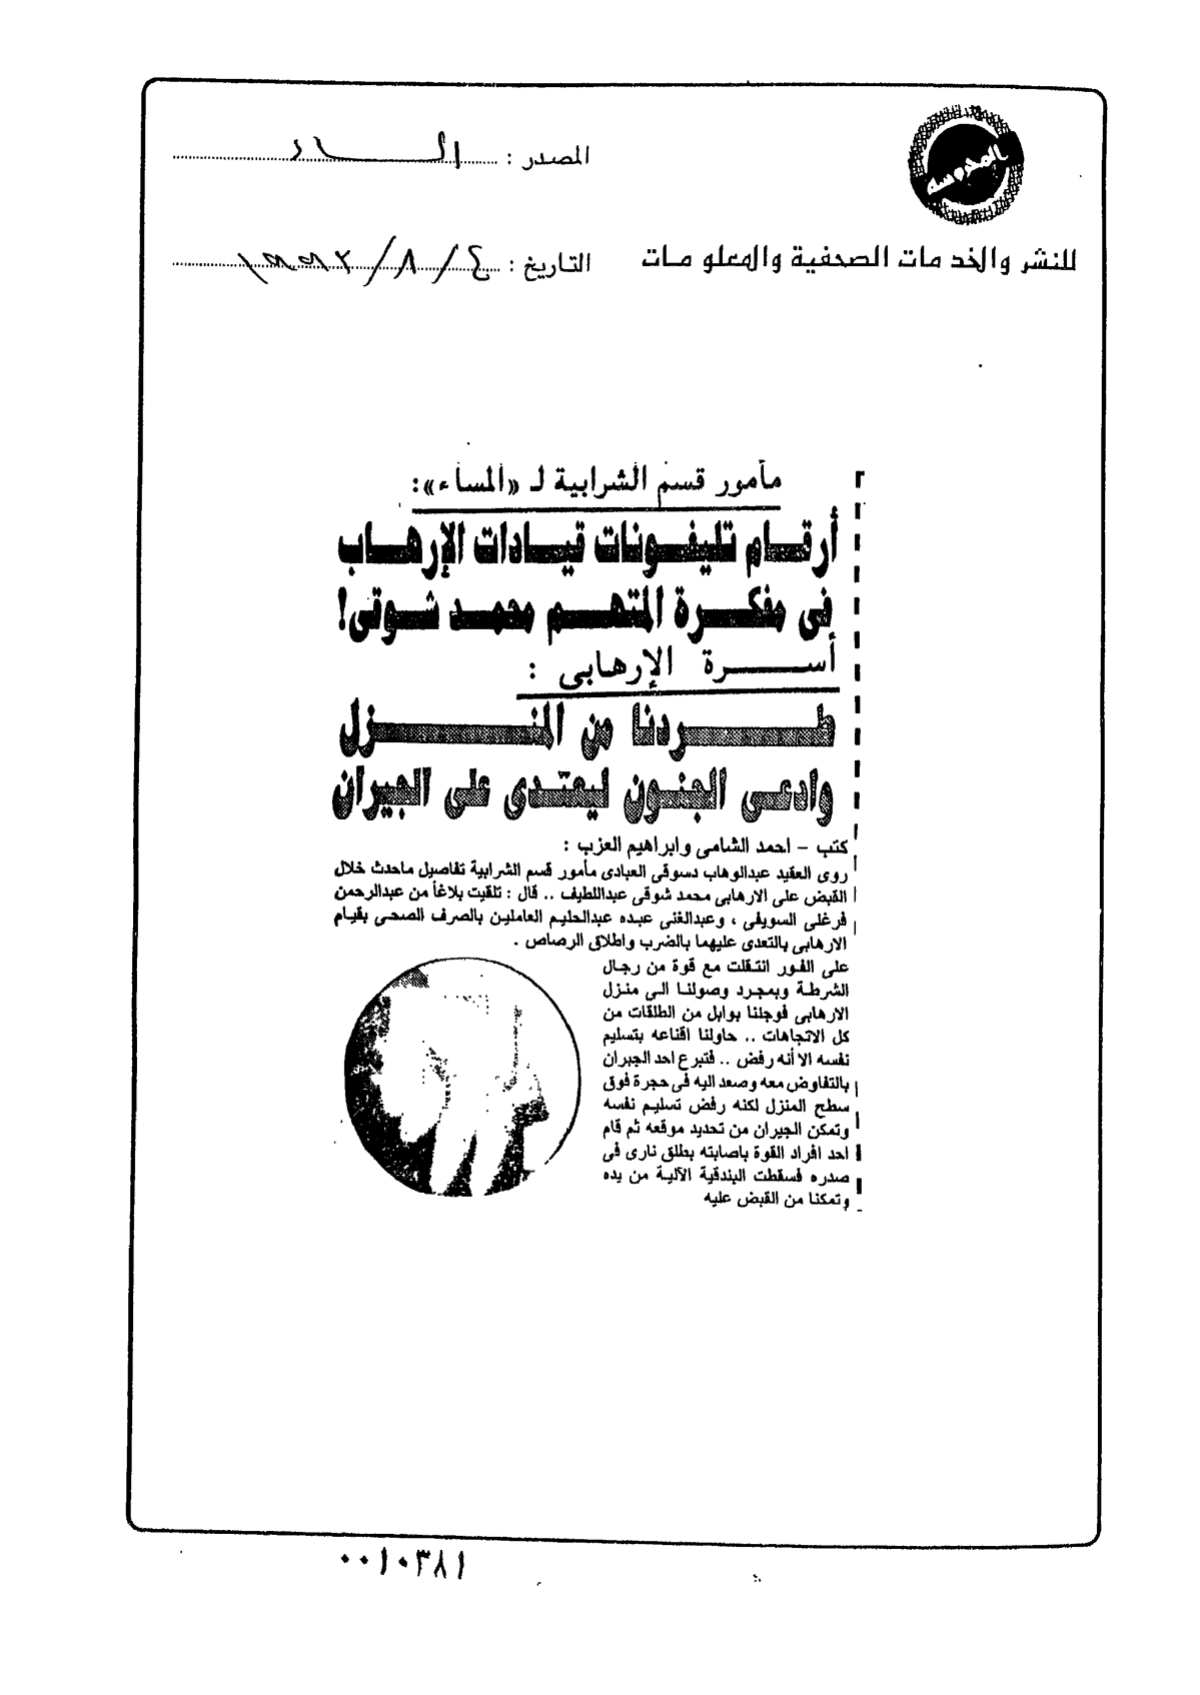 المحروسة
المصدر : المساء
للنشر والخدمات الصحفية والمعلومات
التاريخ : ٤ / ٨ / ١٩٩٢
مأمور قسم الشرابية لـ «المساء»:
أرقـام تليفـونات قيـادات الإرهـاب
فى مفكـرة المتهـم محمـد شوقى!
أسـرة الإرهابى :
طـردنا من المنـزل
وادعـى الجنـون ليعتـدى على الجيران
كتب - احمد الشامى وابراهيم العزب :
روى العقيد عبدالوهاب دسوقى العبادى مأمور قسم الشرابية تفاصيل ماحدث خلال
القبض على الارهابى محمد شوقى عبداللطيف .. قال : تلقيت بلاغا من عبدالرحمن
فرغلى السويفى ، وعبدالغنى عبده عبدالحليم العاملين بالصرف الصحى بقيام
الارهابى بالتعدى عليهما بالضرب واطلاق الرصاص .
على الفور انتقلت مع قوة من رجال
الشرطة وبمجرد وصولنا الى منزل
الارهابى فوجلنا بوابل من الطلقات من
كل الاتجاهات .. حاولنا اقناعه بتسليم
نفسه الا أنه رفض .. فتبرع احد الجيران
بالتفاوض معه وصعد اليه فى حجرة فوق
سطح المنزل لكنه رفض تسليم نفسه
وتمكن الجيران من تحديد موقعه ثم قام
احد افراد القوة باصابته بطلق نارى فى
صدره فسقطت البندقية الآلية من يده
وتمكنا من القبض عليه
٠٠١٠٣٨١